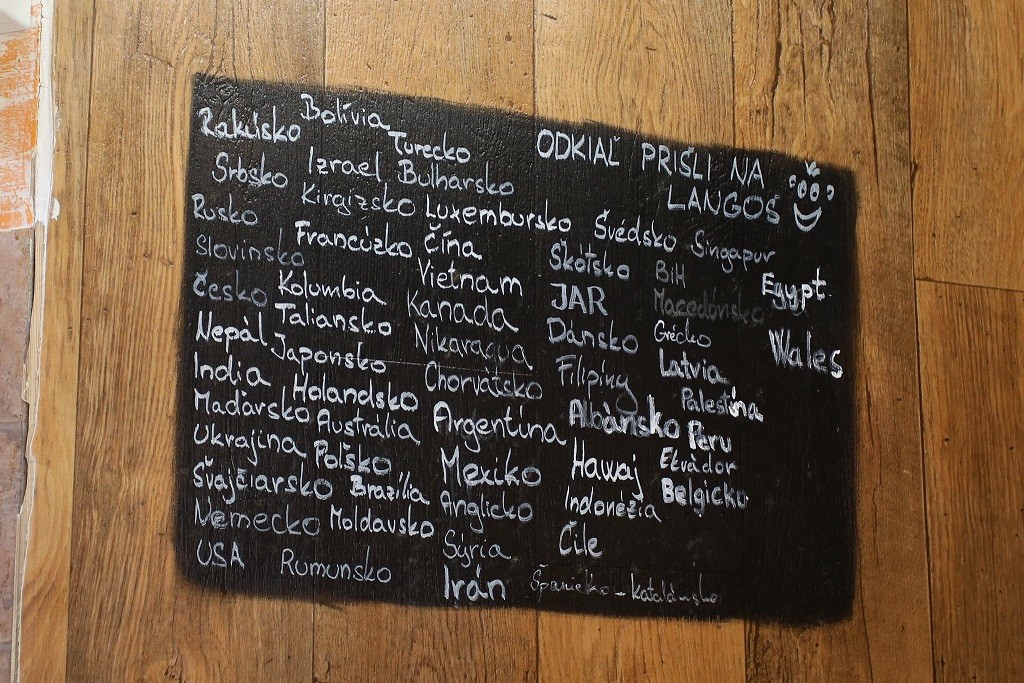 ODKIAĽ PRIŠLI NA
LANGOŠ
Rakúsko
Srbsko
Rusko
Slovinsko
Česko
Nepàl
India
Maďarsko
Ukrajina
Švajčiarsko
Nemecko
USA
Bolívia
Izrael
Kirgizsko
Francúzko
Kolumbia
Taliansko
Japonsko
Holandsko
Austrália
Poľsko
Brazília
Moldavsko
Rumunsko
Turecko
Bulharsko
Luxembursko
Čína
Vietnam
Kanada
Nikaragua
Chorvátsko
Argentína
Mexiko
Anglicko
Sýria
Irán
Švédsko
Škótsko
JAR
Dánsko
Filipíny
Albànsko
Hawaj
Indonézia
Čile
Španielsko - katalánsko
Singapur
BiH
Macedónsko
Grécko
Latvia
Palestína
Peru
Ekvàdor
Belgicko
Egypt
Wales